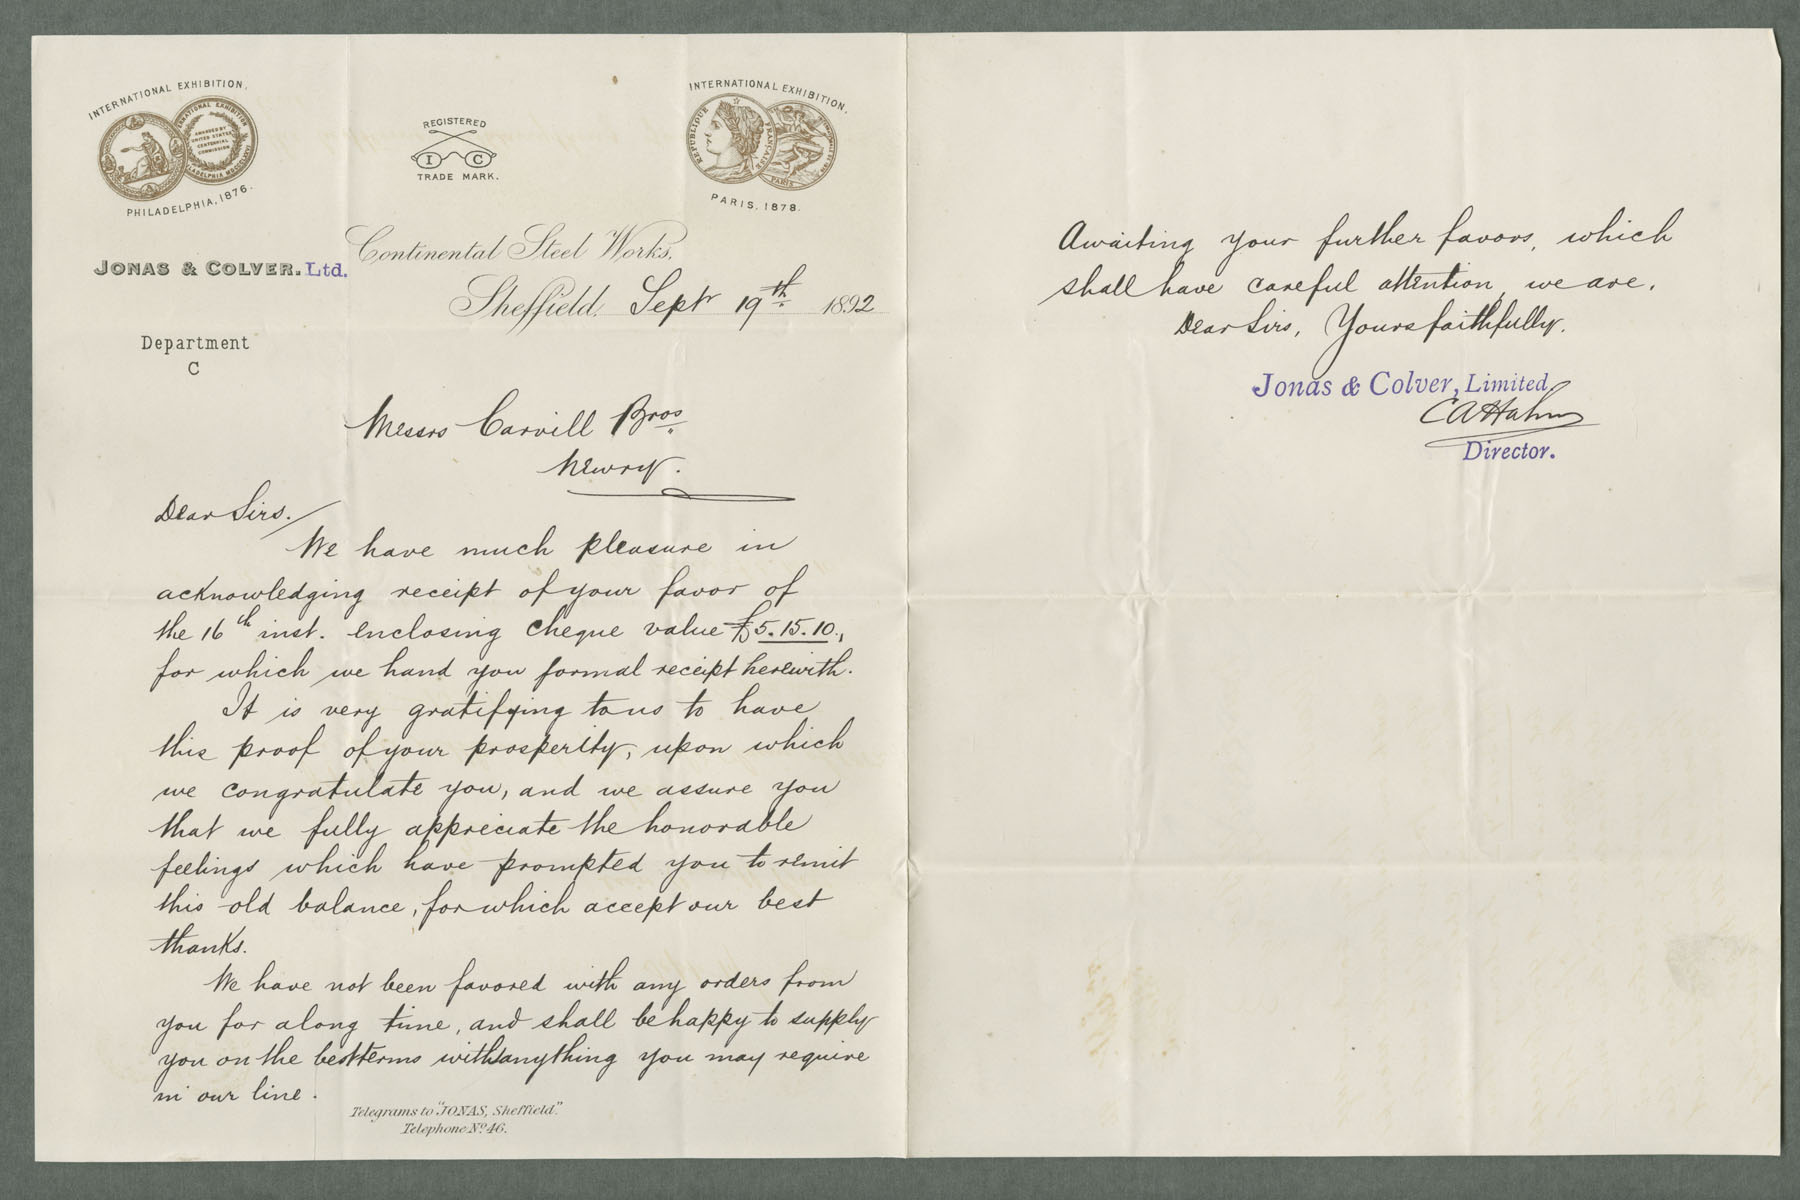 INTERNATIONAL EXHIBITION.
INTERNATIONAL EXHIBITION
AWARDED BY
UNITED STATES
CENTENNIAL
COMMISSION
PHILADELPHIA, 1876.
REGISTERED
I C
TRADE MARK.
INTERNATIONAL EXHIBITION.
REPUBLIQUE FRANÇAISE
PARIS
PARIS. 1878.
JONAS & COLVER. Ltd.
Continental Steel Works.
Sheffield, Septr 19th. 1892
Department
C
Messrs Carvill Bros
Newry.
Dear Sirs.
We have much pleasure in
acknowledging receipt of your favor of
the 16th inst. enclosing cheque value £5.15.10.,
for which we hand you formal receipt herewith.
It is very gratifying to us to have
this proof of your prosperity, upon which
we congratulate you, and we assure you
that we fully appreciate the honorable
feelings which have prompted you to remit
this old balance, for which accept our best
thanks.
We have not been favored with any orders from
you for a long time, and shall be happy to supply
you on the best terms with anything you may require
in our line.
Telegrams to "JONAS, Sheffield."
Telephone No 46.
Awaiting your further favors, which
shall have careful attention, we are.
Dear Sirs, Yours faithfully.
Jonas & Colver, Limited,
CA Hahn
Director.